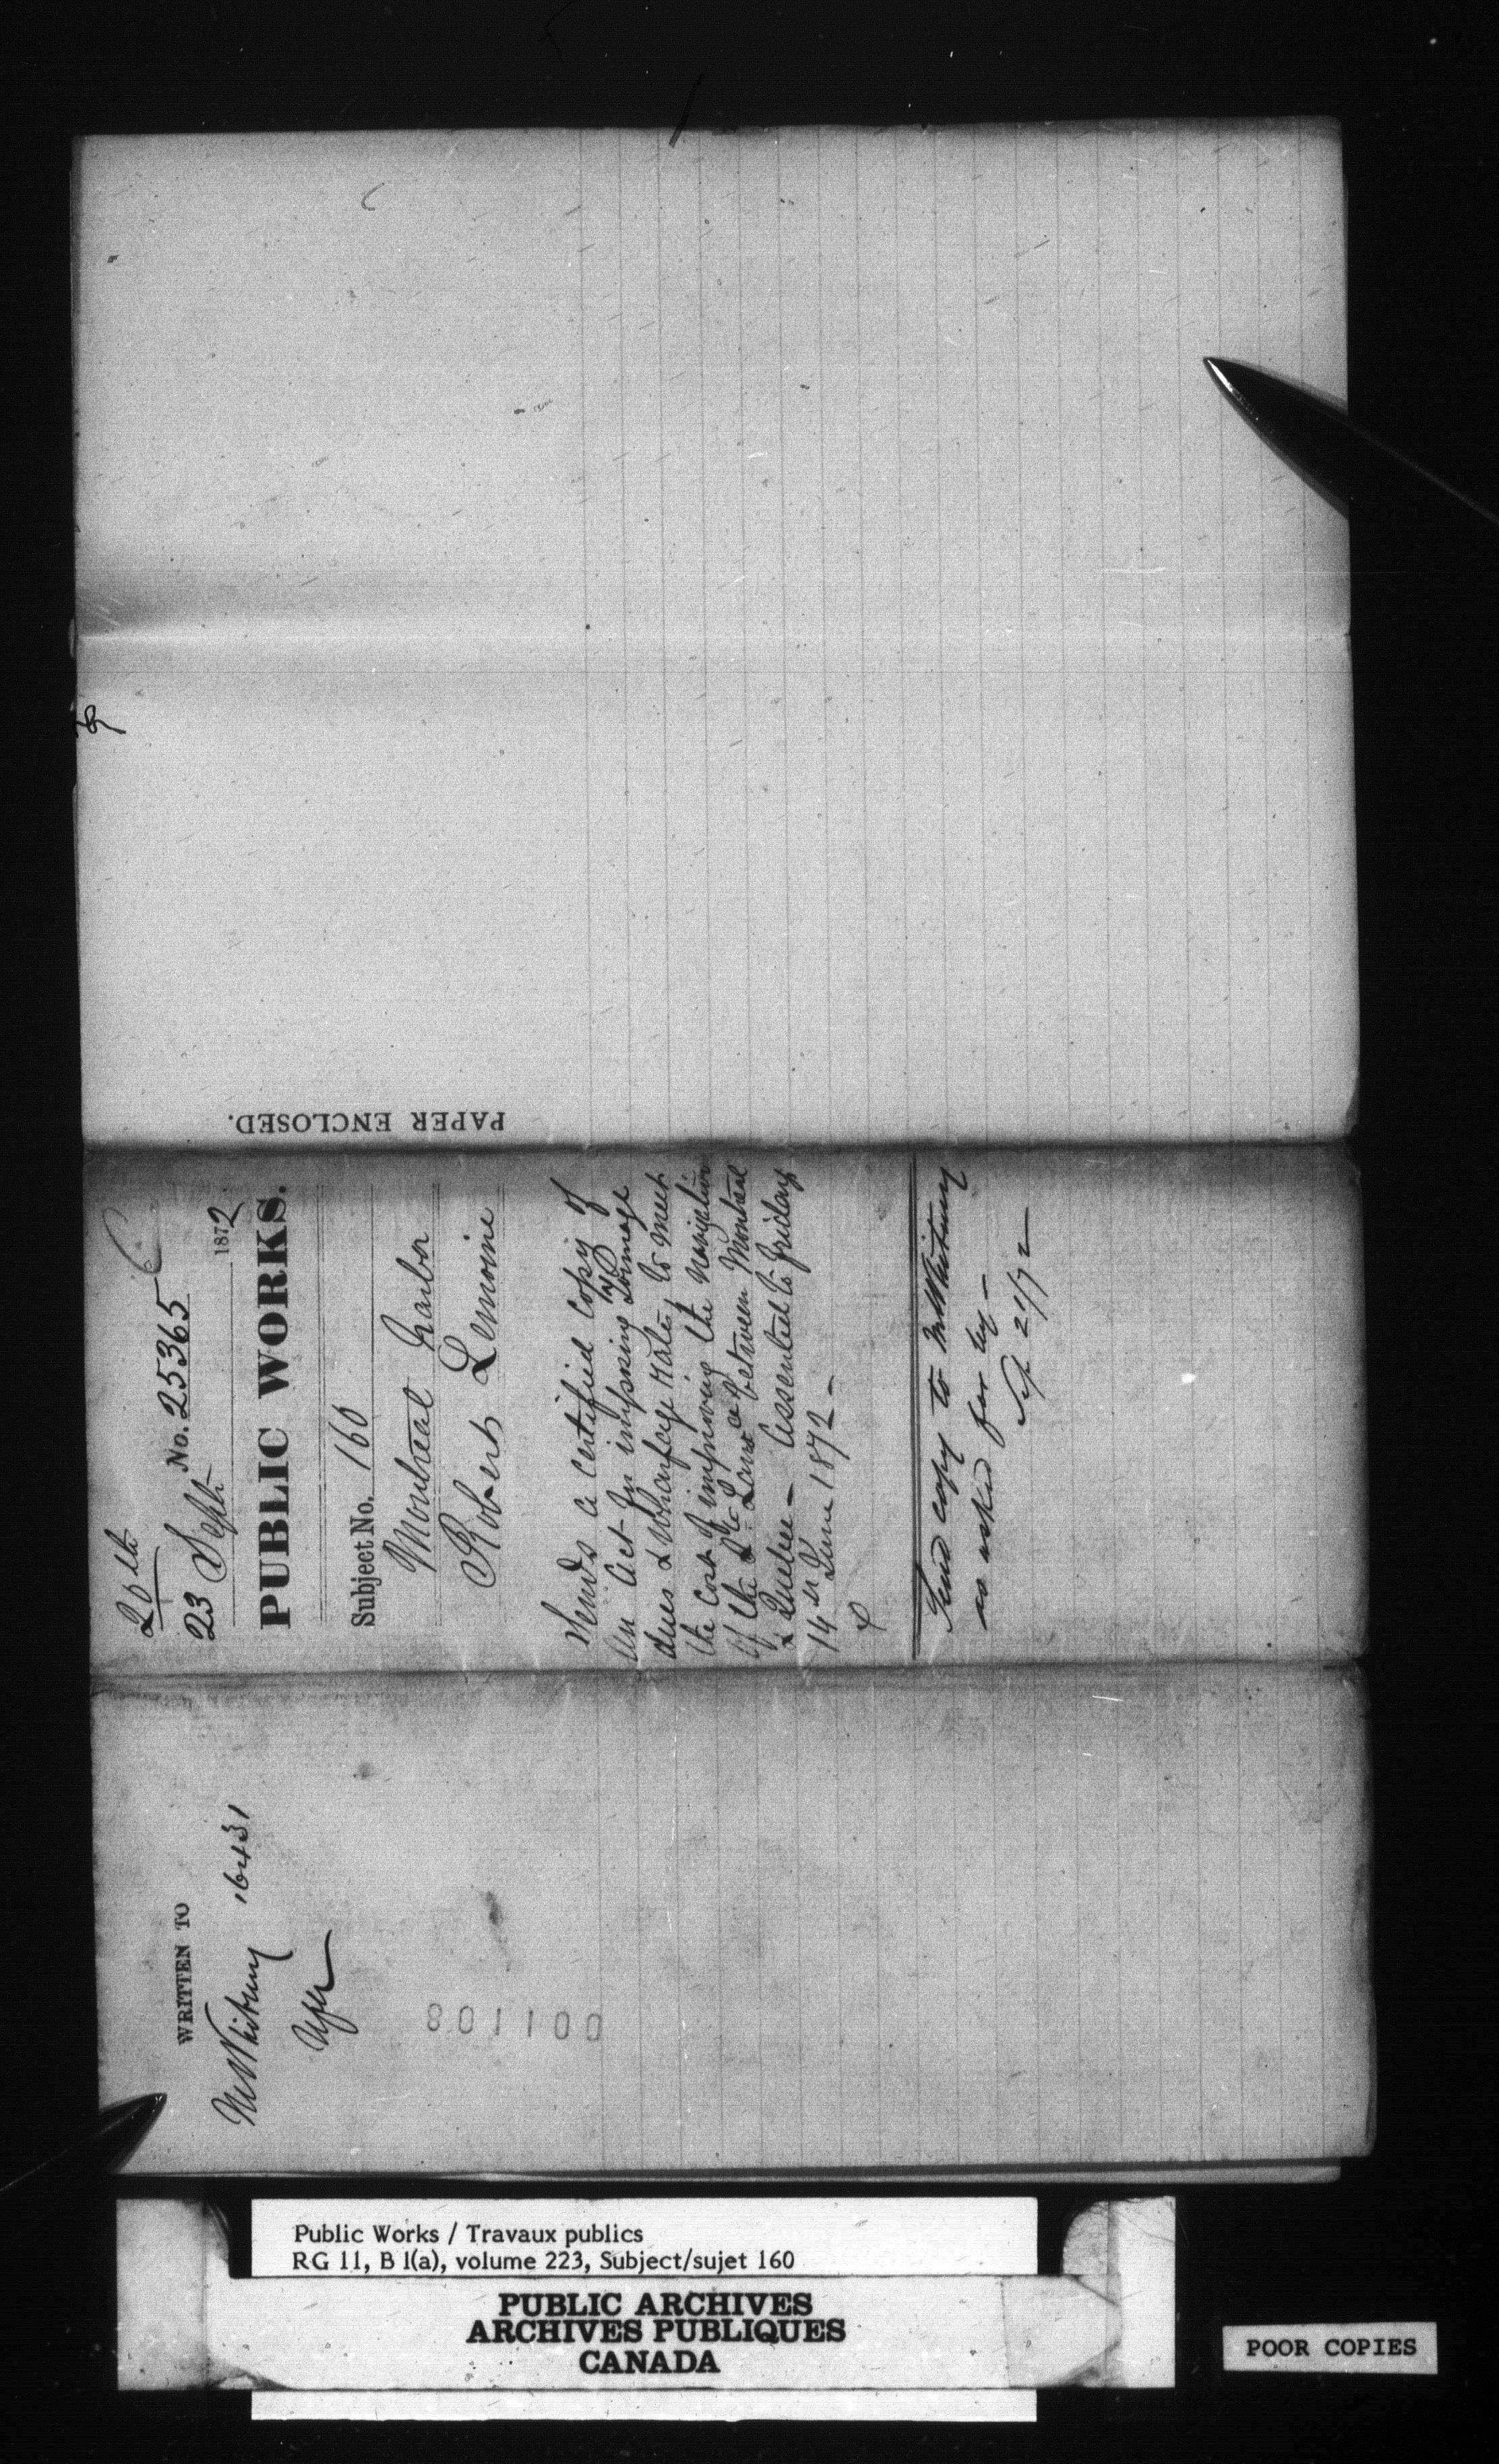 20th
No. 25365
23 Sept 1872
PUBLIC WORKS.
Subject No. 160
Montreal Harbor
Robert Lemoine
Sends a certified copy of
An Act for imposing Tonnage
dues & Wharfage Rates, to meet
the cost of improving the Navigation
of the St. Lawce between Montreal
& Quebec – Assented to friday
14th June 1872 –
Send copy to Mr Whitney
as asked for by –
WRITTEN TO
Mr Whitney 16431
PAPER ENCLOSED.
801100
Public Works / Travaux publics
RG 11, B 1(a), volume 223, Subject/sujet 160
PUBLIC ARCHIVES
ARCHIVES PUBLIQUES
CANADA
POOR COPIES